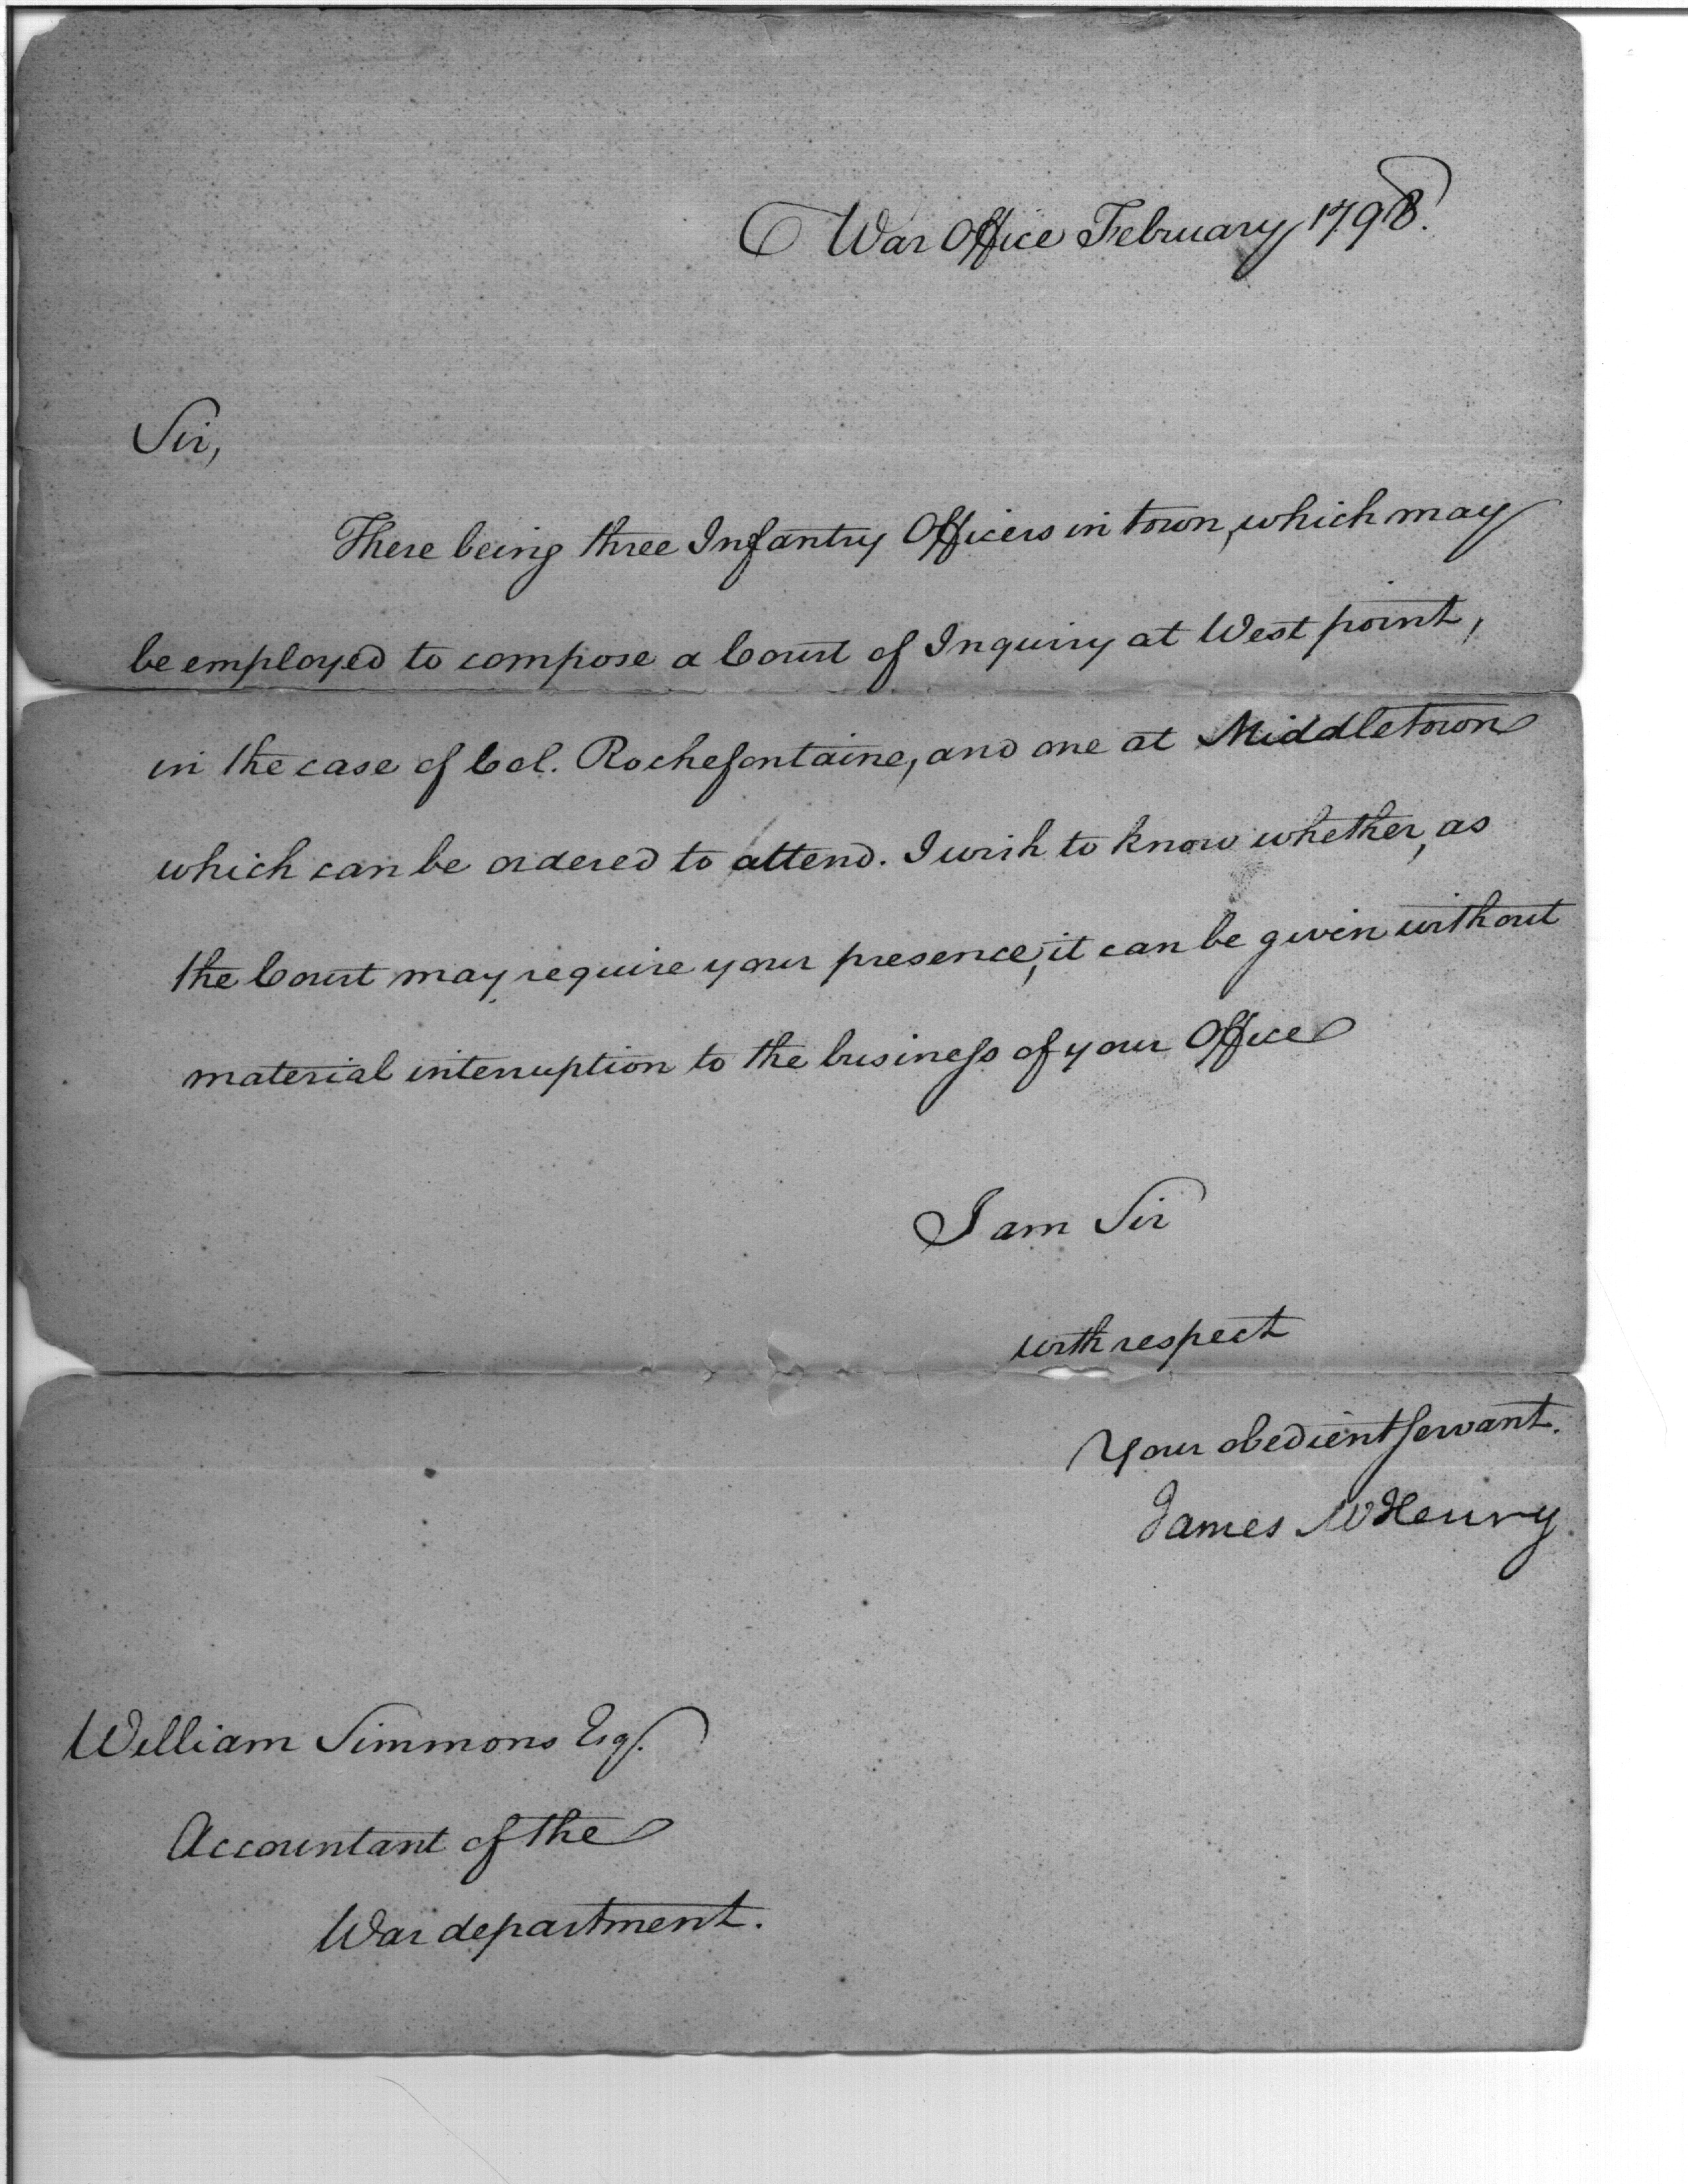 War Office February 1798.
Sir,
There being three Infantry Officers in town, which may
be employed to compose a Court of Inquiry at West point,
in the case of Col. Rochefontaine, and one at Middletown
which can be ordered to attend. I wish to know whether, as
the Court may require your presence, it can be given without
material interruption to the business of your Office
I am Sir
with respect
Your obedient servant.
James McHenry
William Simmons Esq.
Accountant of the
War department.